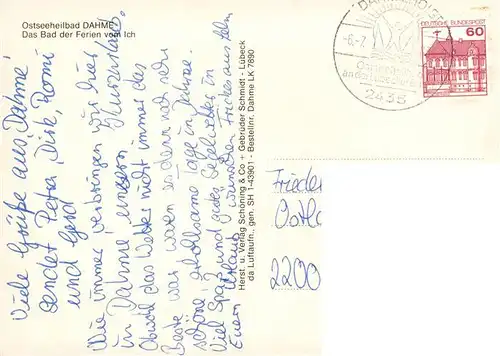 Ostseeheilbad DAHME
Das Bad der Ferien vom Ich
Viele Grüße aus Dahme
sendet Petra, Dirk, Romi
und Gerd
Wie immer verbringen wir hier
in Dahme unseren Kurzurlaub.
Obwohl das Wetter nicht immer das
Beste war, waren es dennoch sehr
schöne, erholsame Tage in Dahme.
Viel Spaß und gutes
Euern Urlaub wünschen
Herst. u. Verlag Schöning & Co + Gebrüder Schmidt - Lübeck
da Luftaufn., gen. SH 1-43901 - Bestellnr. Dahme LK 7890
-6.-7.
2435
DEUTSCHE BUNDESPOST
60
Frieder
2200